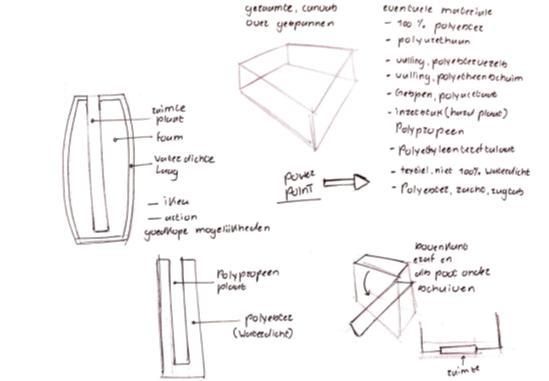 geraamte, canvas
over gespannen
eventuele materiale
- 100 % polyester
- polyurethaan
- vulling, polyestervezels
- vulling, polyetheenschuim
- Gespen, polyacetaat
- inzetstuk (hard plaat)
Polypropeen
- Polyethyleentereftalaat
- textiel, niet 100% waterdicht
- Polyester, zacht, zugbaar
ruimte
plaat
foam
waterdichte
laag
- ikea
- action
goedkope mogelijkheden
power
point
Polypropeen
plaat
polyester
(waterdicht)
bovenkant
eraf en
als poot onder
schuiven
ruimte